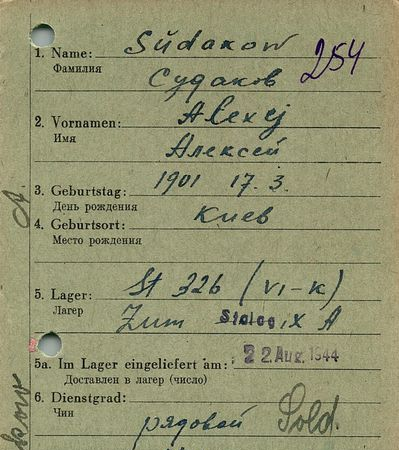 1. Name: Südakow
Фамилия Судаков 254
2. Vornamen: Alexej
Имя Алексей
3. Geburtstag: 1901 17. 3.
День рождения
4. Geburtsort: Киев
Место рождения
5. Lager: St 326 (VI-K)
Лагер Zum Stalag IX A
5a. Im Lager eingeliefert am: 22. Aug. 1944
Доставлен в лагер (число)
6. Dienstgrad:
Чин рядовой Sold.
A.